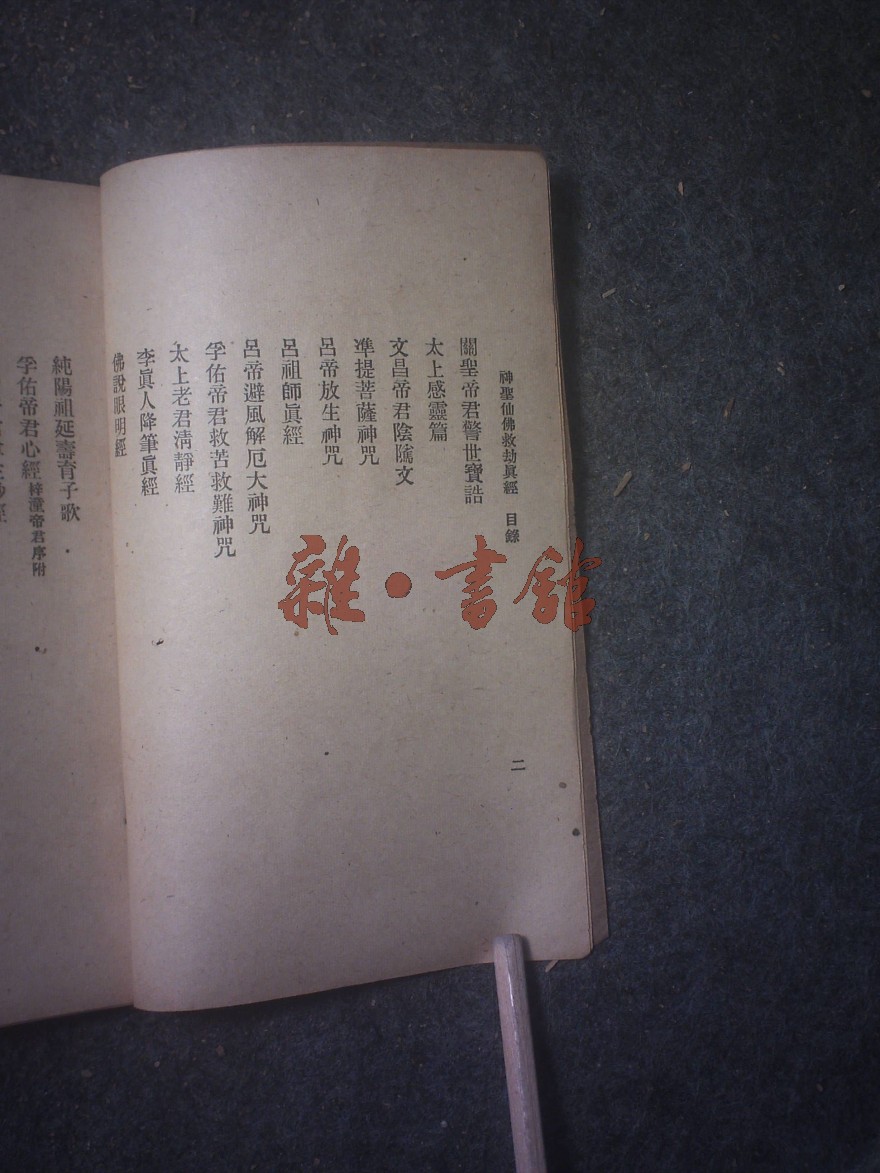 神聖仙佛救劫眞經　目錄
二
關聖帝君警世寶誥
太上感靈篇
文昌帝君陰隲文
準提菩薩神咒
呂帝放生神咒
呂祖師眞經
呂帝避風解厄大神咒
孚佑帝君救苦救難神咒
太上老君淸靜經
李眞人降筆眞經
佛說眼明經
純陽祖延壽育子歌
孚佑帝君心經 梓潼帝君序附
雜·書舘